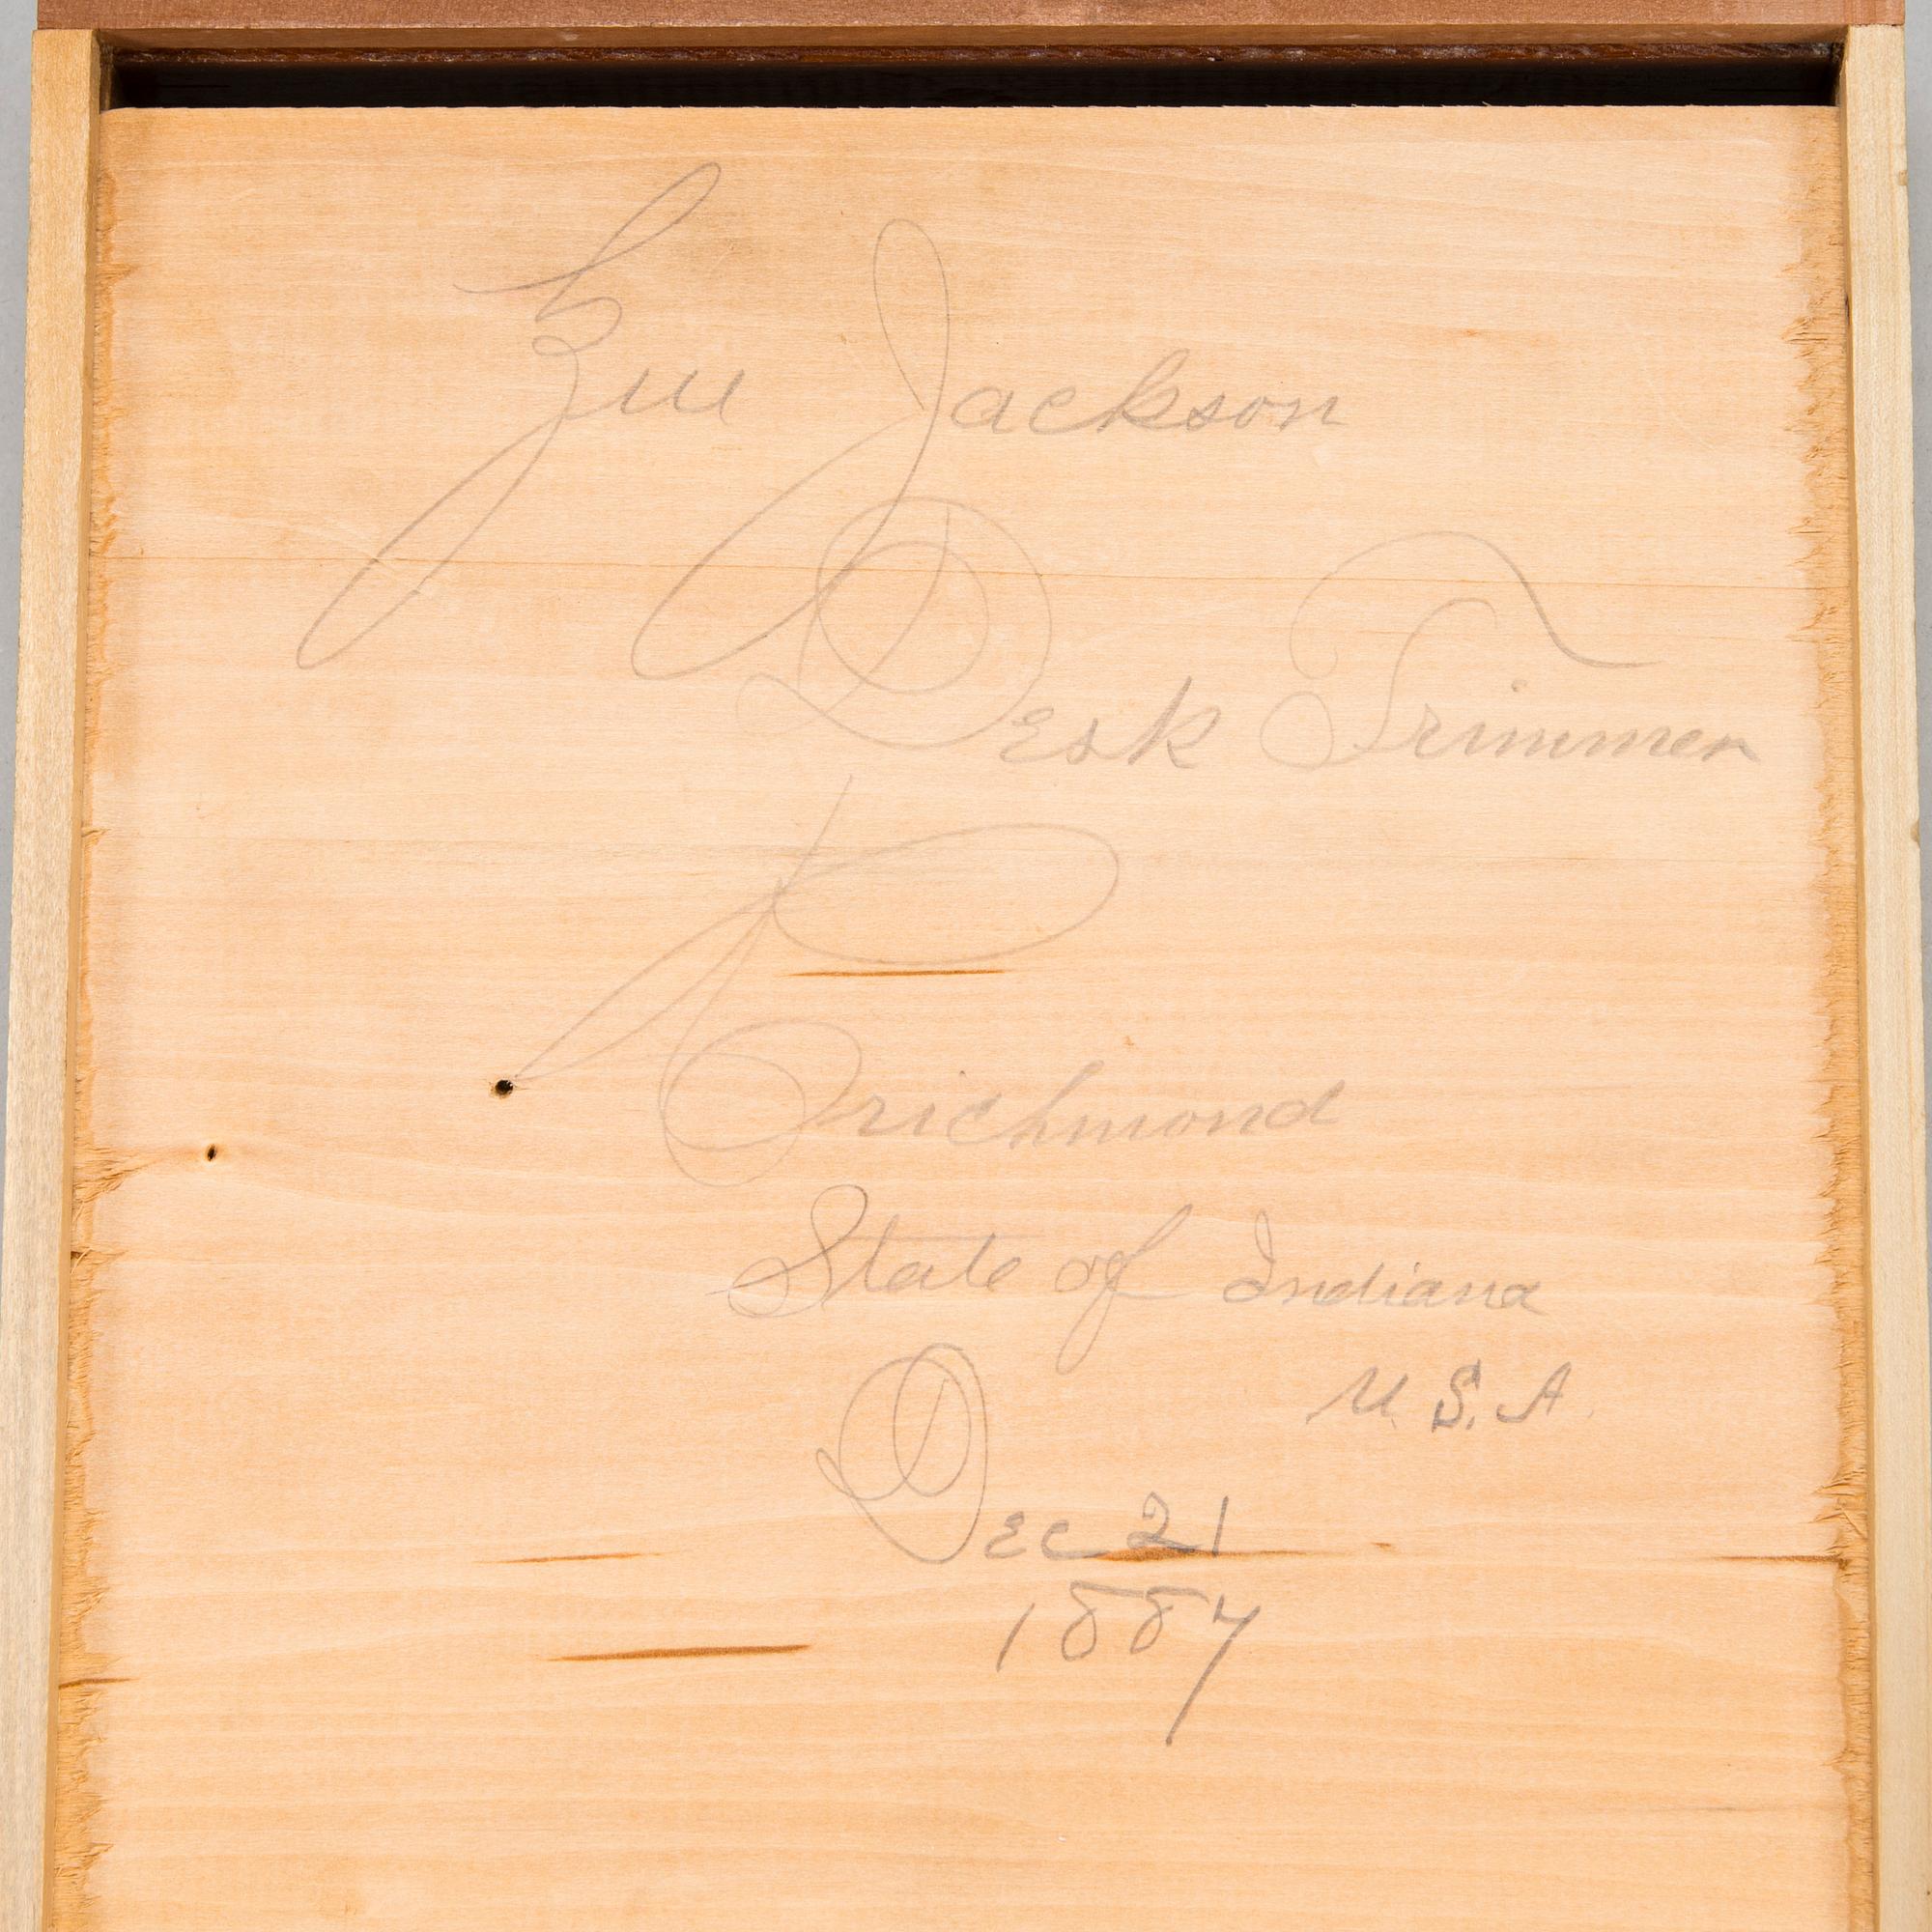 Jackson
Desk Trimmer
Richmond
State of Indiana
U. S. A.
Dec 21
1887